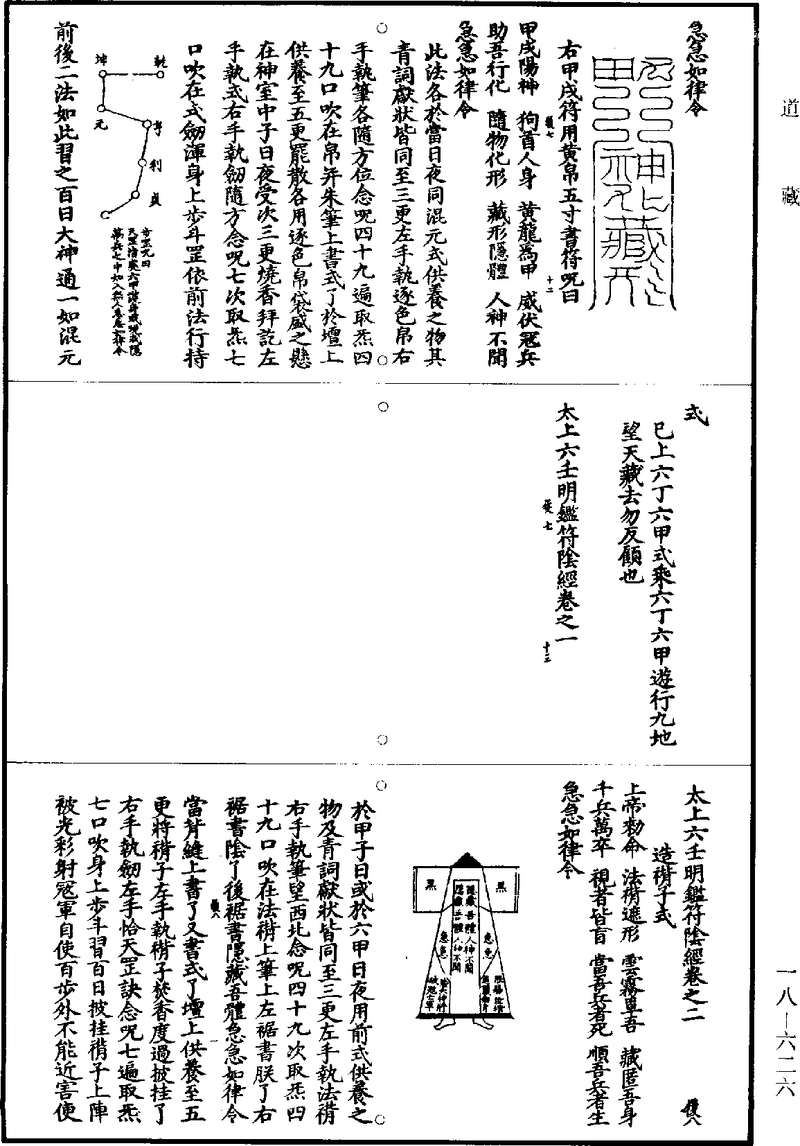 道藏
急急如律令
右甲戌符用黄帛五寸書符呪曰
甲戌陽神　狥首人身　黄龍爲甲　威伏冠兵
助吾行化　隨物化形　藏形隱體　人神不聞
急急如律令
此法各於當日夜同混元式供養之物其
青詞獻狀皆同至三更左手執逐色帛右
手執筆各隨方位念呪四十九遍取炁四
十九口吹在帛并朱筆上書式了於壇上
供養至五更罷散各用逐色帛袋盛之懸
在神室中子日夜受次三更燒香拜訖左
手執式右手執劒隨方念呪七次取炁七
口吹在式劒渾身上步斗罡依前法行持
乾
坤
元
亨
利
貞
前後二法如此習之百日大神通一如混元
式
已上六丁六甲式乘六丁六甲遊行九地
望天藏去勿反顧也
太上六壬明鑑符陰經卷之一
太上六壬明鑑符陰經卷之二
造褙子式
上帝勑命　法褙遮形　雲霧罩吾　藏匿吾身
千兵萬卒　視者皆盲　當吾兵者死　順吾兵者生
急急如律令
黑
黑
隱藏吾體人神不聞
於甲子日或於六甲日夜用前式供養之
物及青詞獻狀皆同至三更左手執法褙
右手執筆望西北念呪四十九次取炁四
十九口吹在法褙上筆上左裾書朕了右
裾書陰了後裾書隱藏吾體急急如律令
當背縫上書了又書式了壇上供養至五
更將褙子左手執褙子焚香度過披挂了
右手執劒左手恰天罡訣念呪七遍取炁
七口吹身上步斗習百日披挂褙子上陣
被光彩射冠軍自使百步外不能近害使
一八—六二六